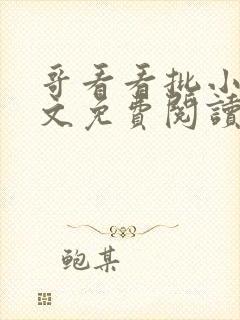 哥看看批小
文免費閱讀
鲍某